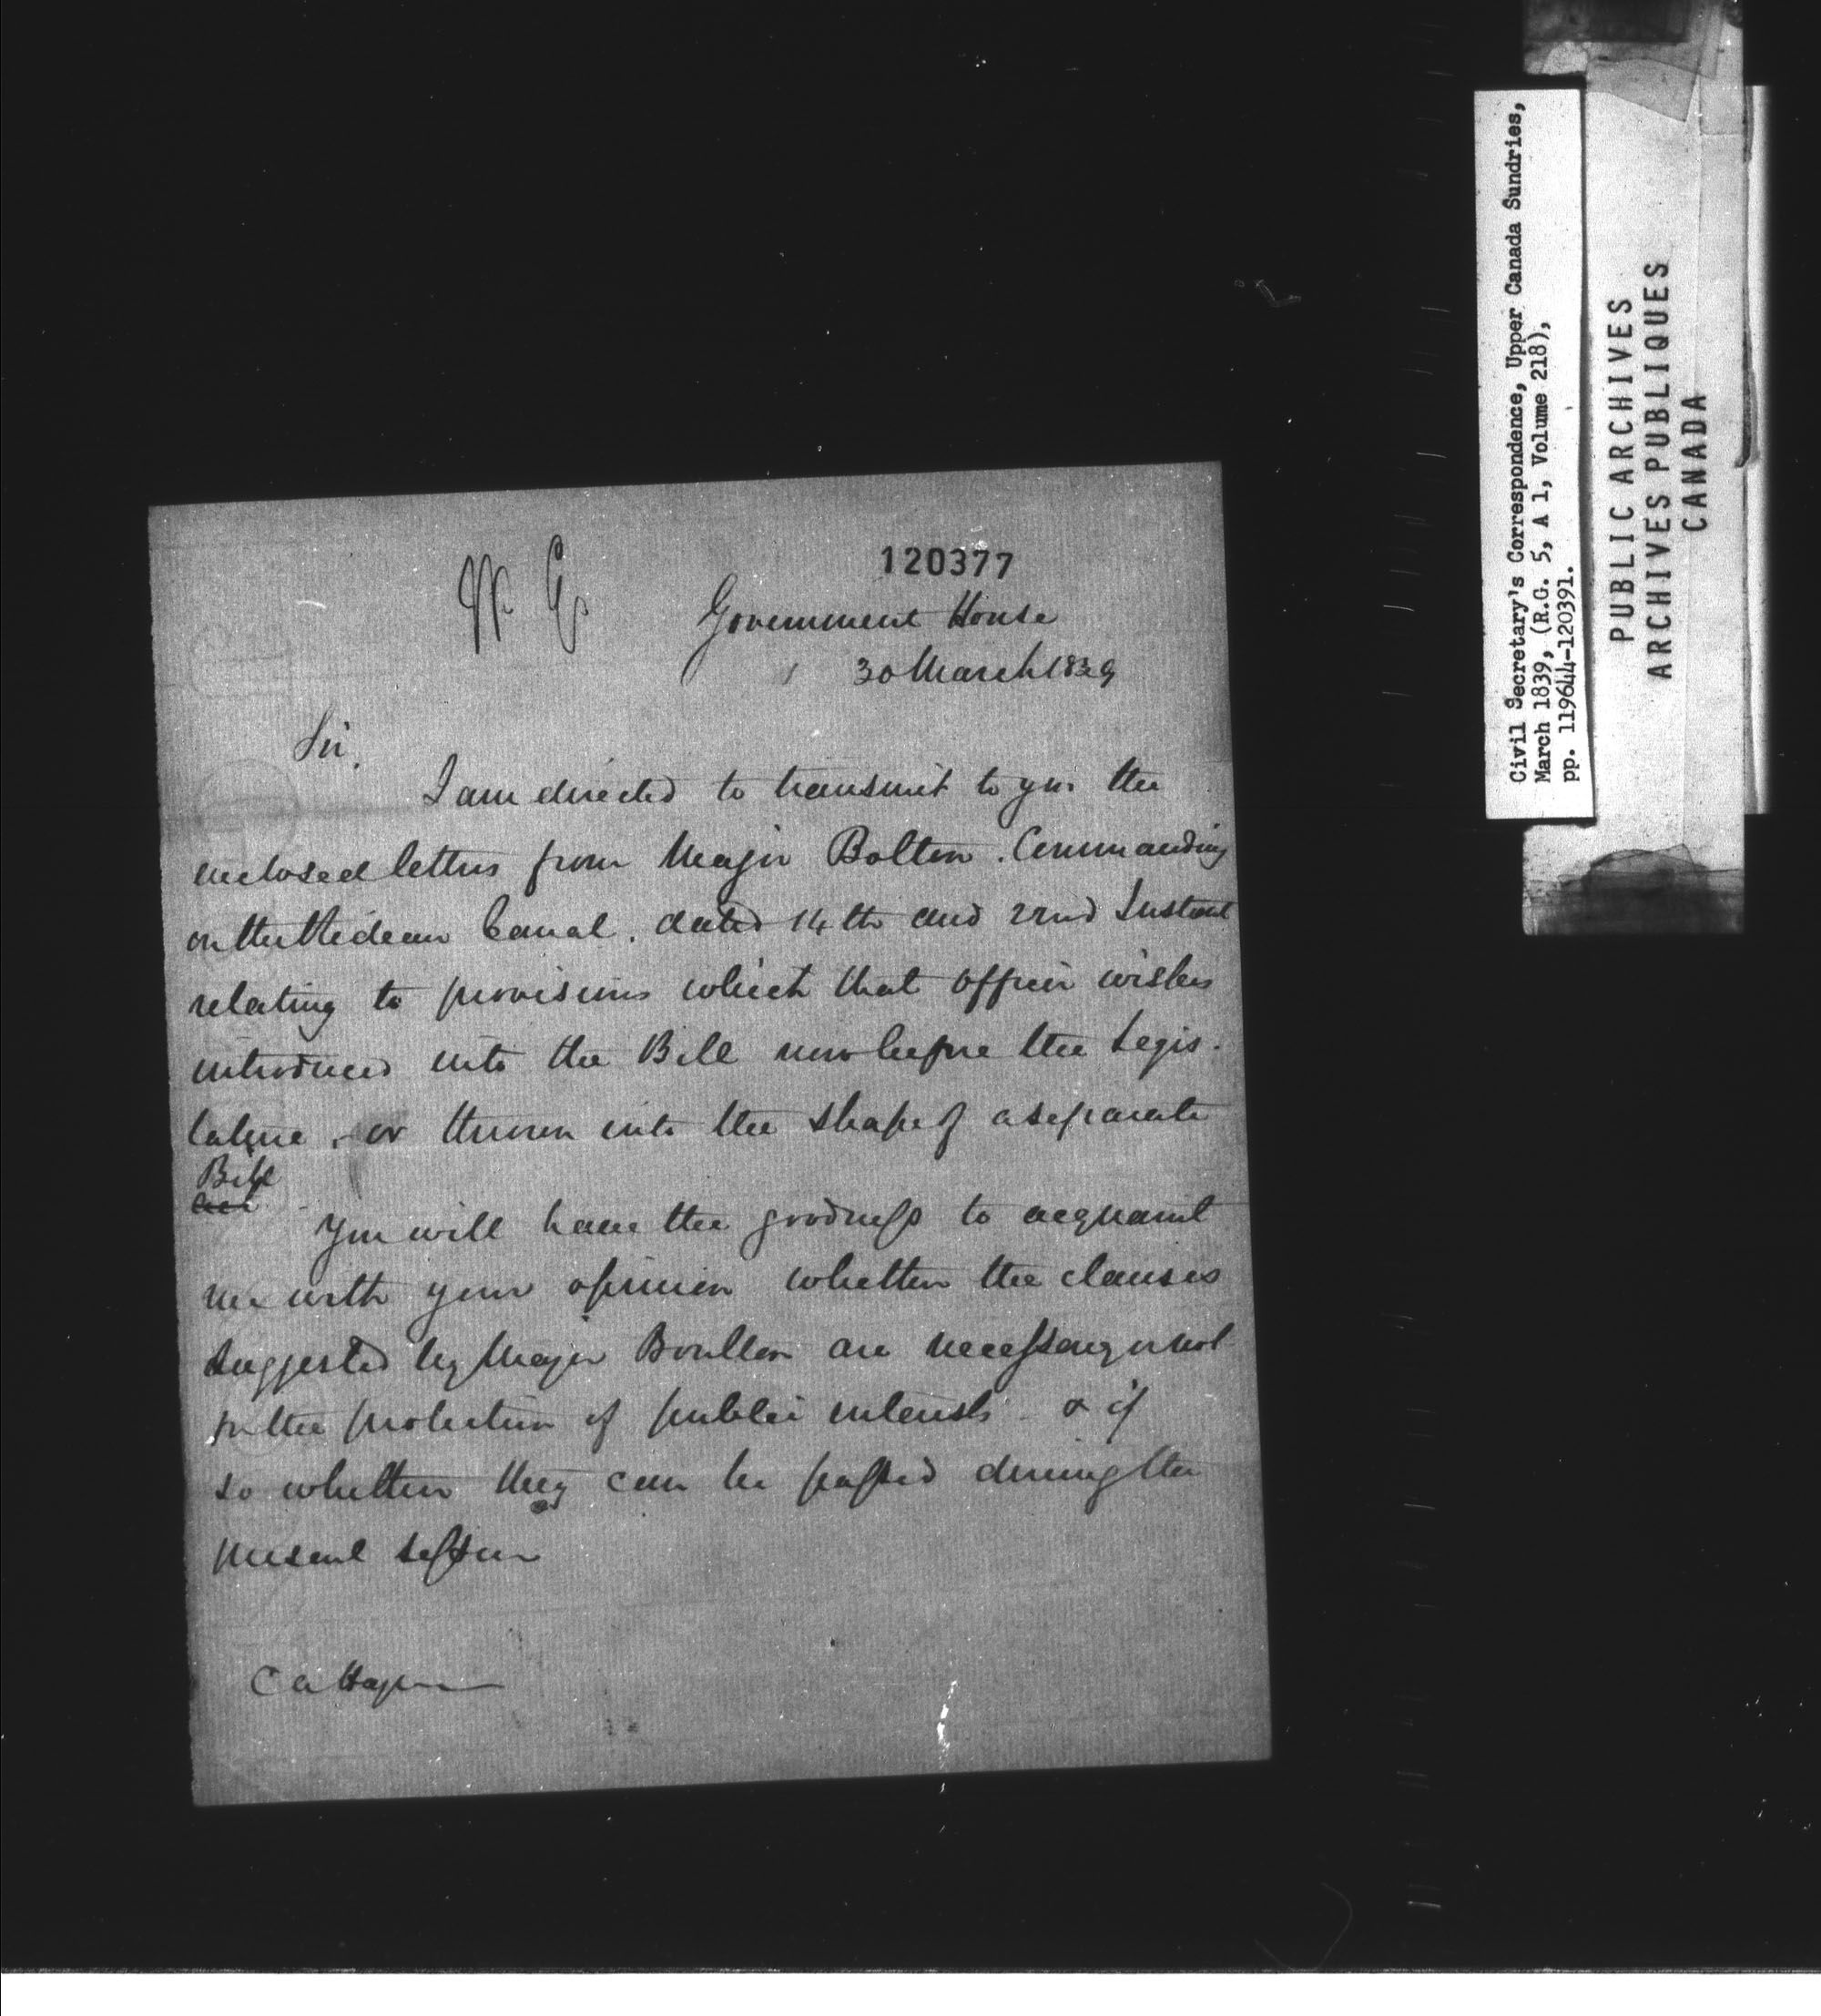 120377
Government House
30 March 1839
Sir,
I am directed to transmit to you the
enclosed letters from Major Bolton. Commanding
on the Rideau Canal. dated 14th and 22nd Instant
relating to provisions which that officer wishes
introduced into the Bill now before the Legis-
lature, or thrown into the shape of a separate
Bill
You will have the goodness to acquaint
me with your opinion whether the clauses
suggested by Major Boulton are necessary or not
for the protection of public interests & if
so whether they can be passed during the
present session
C a Hagerman
Civil Secretary's Correspondence, Upper Canada Sundries,
March 1839, (R.G. 5, A 1, Volume 218),
pp. 119644-120391.
PUBLIC ARCHIVES
ARCHIVES PUBLIQUES
CANADA